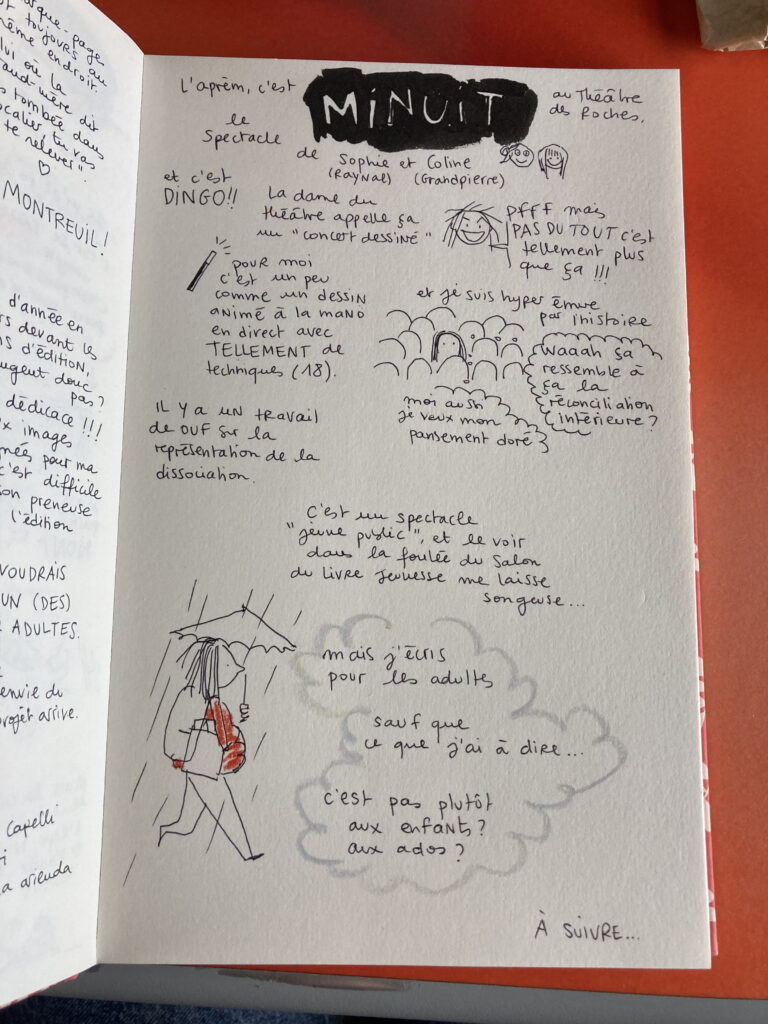 que-page
st toujours au
même endroit.
lui où la
and-mère dit
s tombée dans
scalier tu vas
te relever"
MONTREUIL!
d'année en
rs devant les
s d'édition,
ugent donc
pas?
dédicace !!!
x images
nées pour ma
c'est difficile
on preneuse
l'édition
VOUDRAIS
UN (DES)
ADULTES.
envie du
projet arrive.
Capelli
a arienda
L'aprèm, c'est MINUIT au Théâtre
des Roches,
le
spectacle
de Sophie et Coline
(Raynal) (Grandpierre)
et c'est
DINGO!!
La dame du
théâtre appelle ça
un "concert dessiné"
pfff mais
PAS DU TOUT c'est
tellement plus
que ça !!!
pour moi
c'est un peu
comme un dessin
animé à la mano
en direct avec
TELLEMENT de
techniques (18).
et je suis hyper émue
par l'histoire
waaah ça
ressemble à
ça la
réconciliation
intérieure?
moi aussi
je veux mon
pansement doré
Il y a un travail
de ouf sur la
représentation de la
dissociation.
C'est un spectacle
"jeune public", et le voir
dans la foulée du Salon
du livre jeunesse me laisse
songeuse...
mais j'écris
pour les adultes
sauf que
ce que j'ai à dire...
c'est pas plutôt
aux enfants?
aux ados?
À SUIVRE...